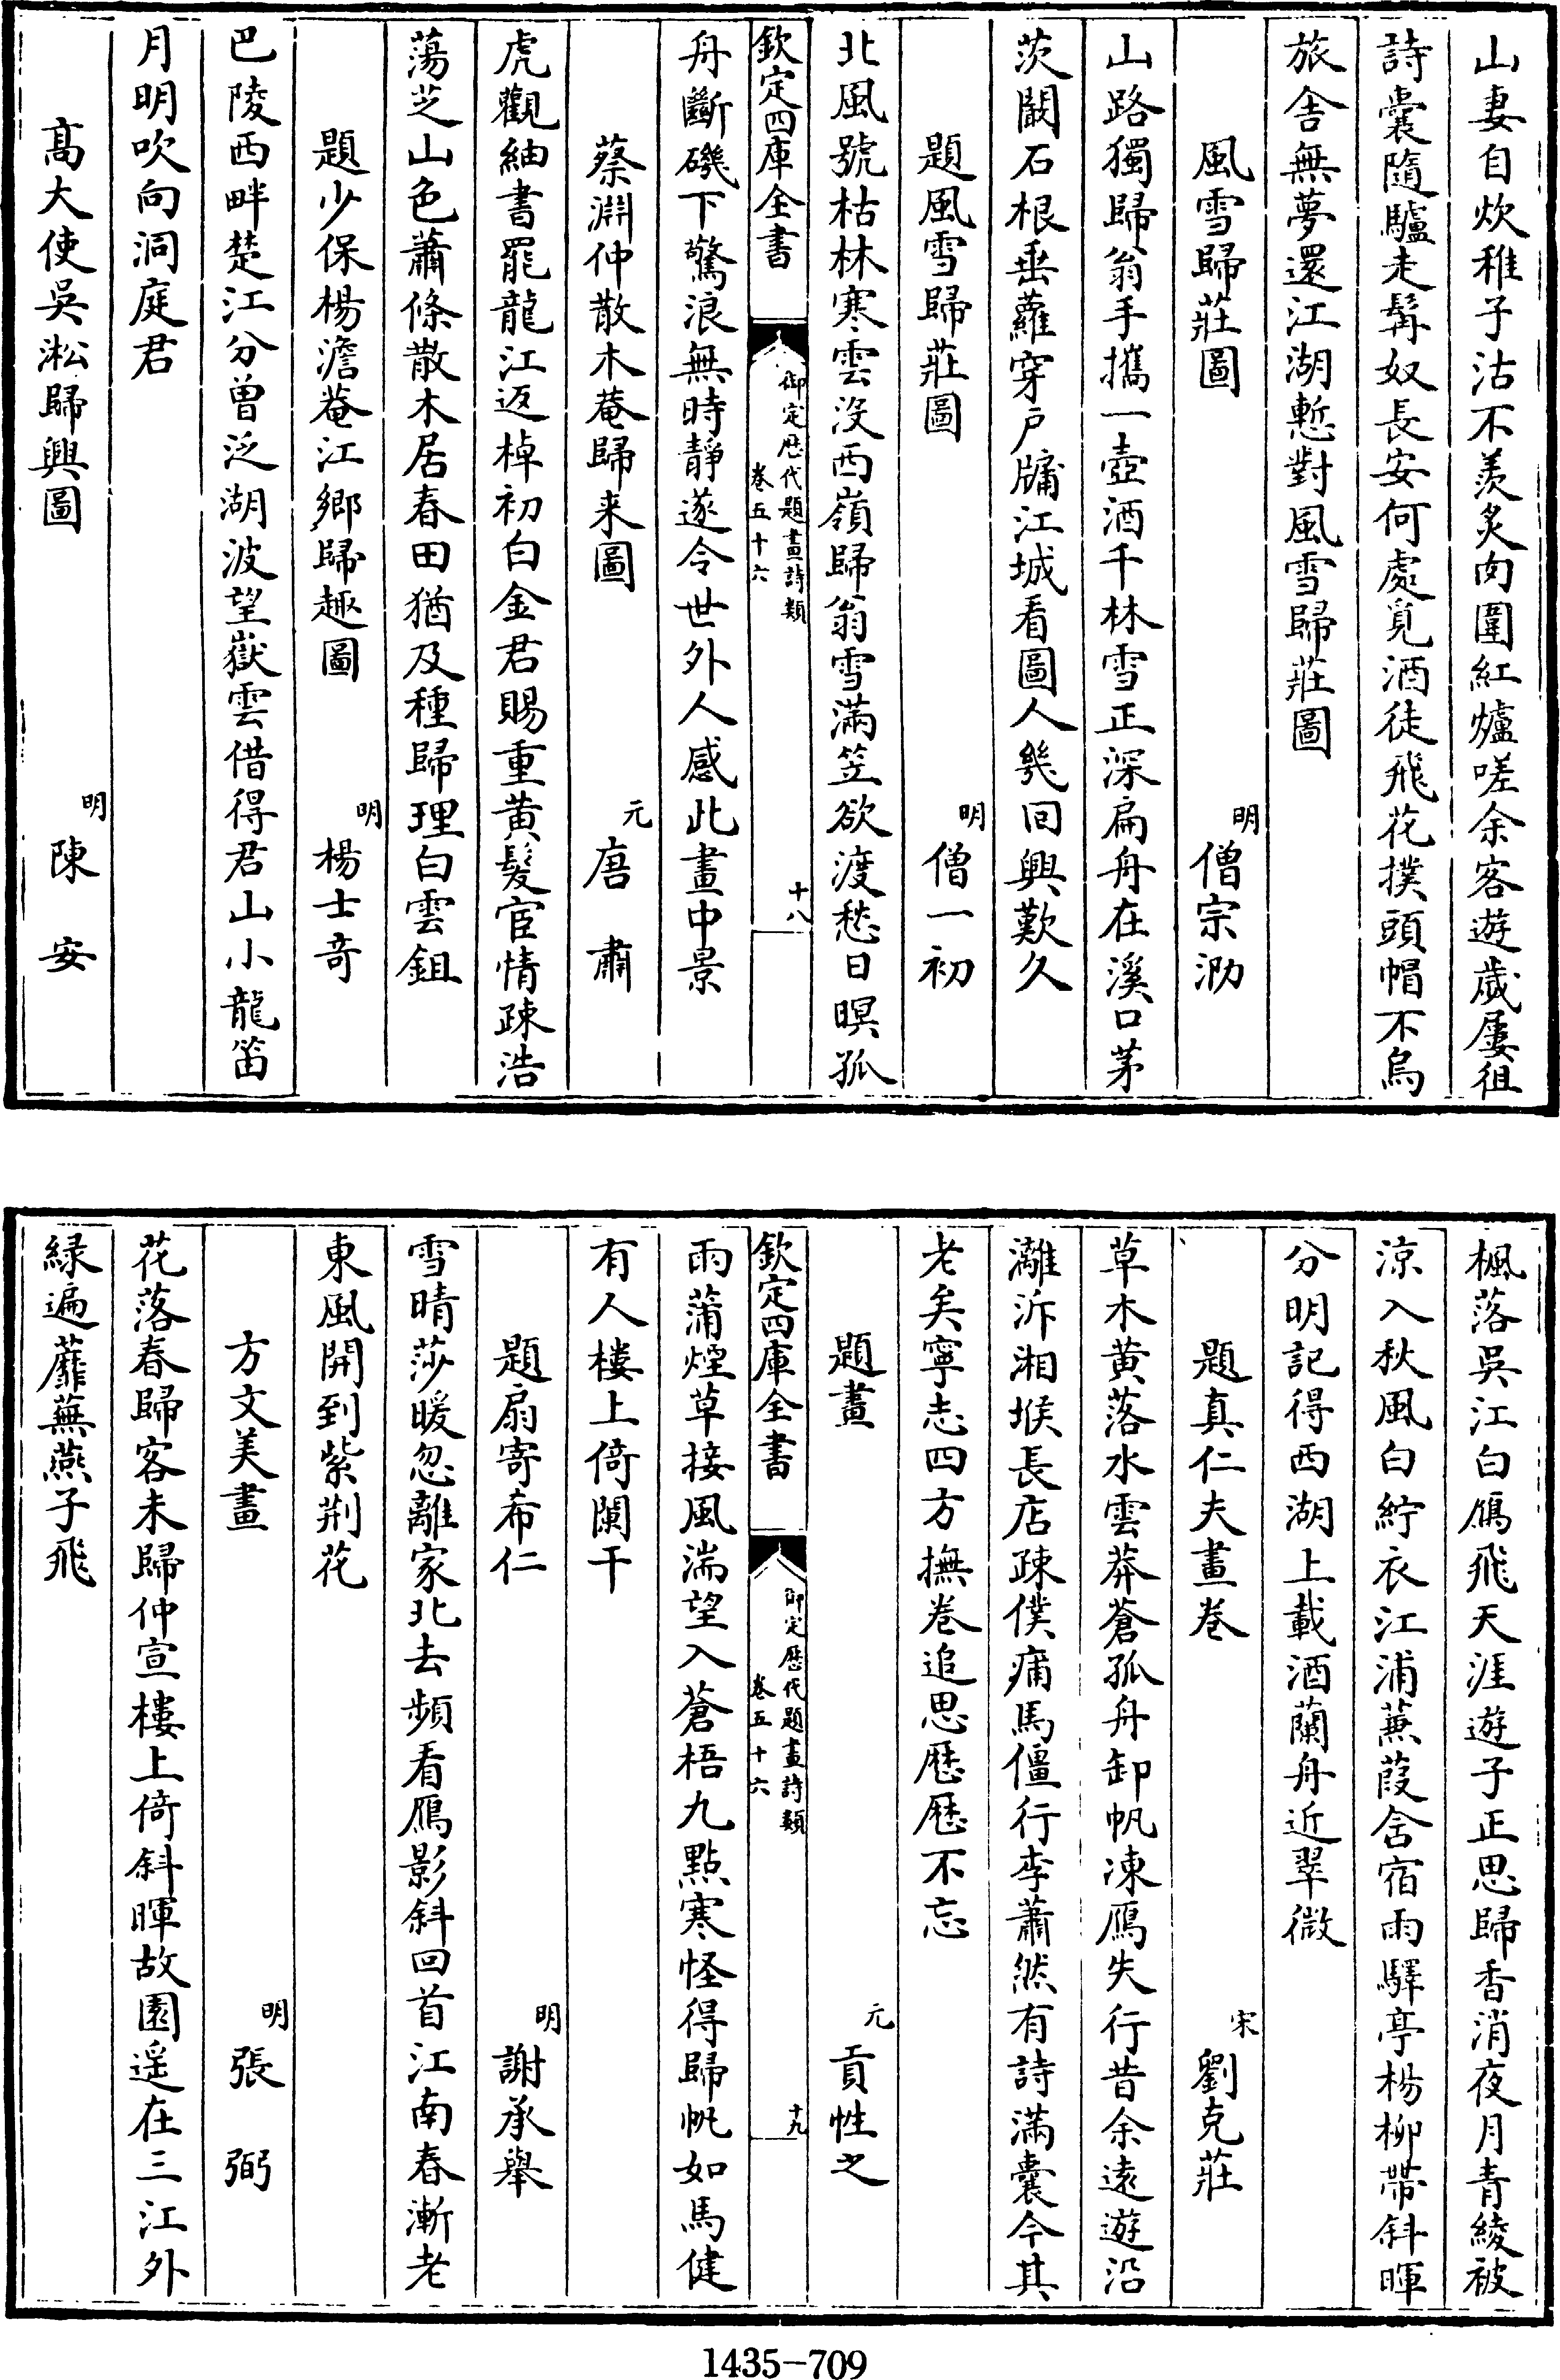 山妻自炊稚子沽不羨炙肉圍紅爐嗟余客遊歲屢徂
詩囊隨驢走髯奴長安何處覓酒徒飛花撲頭帽不烏
旅舍無夢還江湖慙對風雪歸莊圖
風雪歸莊圖 明 僧宗泐
山路獨歸翁手攜一壺酒千林雪正深扁舟在溪口茅
茨闢石根垂蘿穿戶牖江城看圖人幾回興歎久
題風雪歸莊圖 明 僧一初
北風號枯林寒雲沒西嶺歸翁雪滿笠欲渡愁日暝孤
欽定四庫全書 御定歷代題畫詩類 卷五十六 十八
舟斷磯下驚浪無時靜遂令世外人感此畫中景
蔡淵仲散木菴歸来圖 元 唐肅
虎觀紬書罷龍江返棹初白金君賜重黃髮宦情疎浩
蕩芝山色蕭條散木居春田猶及種歸理白雲鉏
題少保楊澹菴江鄉歸趣圖 明 楊士奇
巴陵西畔楚江分曽泛湖波望嶽雲借得君山小龍笛
月明吹向洞庭君
髙大使吳淞歸興圖 明 陳安
楓落吳江白鴈飛天涯遊子正思歸香消夜月青綾被
涼入秋風白紵衣江浦蒹葭含宿雨驛亭楊柳帶斜暉
分明記得西湖上載酒蘭舟近翠微
題真仁夫畫卷 宋 劉克莊
草木黃落水雲莽蒼孤舟卸帆凍鴈失行昔余遠遊沿
灕泝湘堠長店疎僕痡馬僵行李蕭然有詩滿囊今其
老矣寧志四方撫卷追思歷歷不忘
題畫 元 貢性之
雨蒲煙草接風湍望入蒼梧九點寒怪得歸帆如馬健
有人樓上倚闌干
欽定四庫全書 御定歷代題畫詩類 卷五十六 十九
題扇寄希仁 明 謝承舉
雪晴莎暖忽離家北去頻看鴈影斜回首江南春漸老
東風開到紫荆花
方文美畫 明 張弼
花落春歸客未歸仲宣樓上倚斜暉故園遥在三江外
緑遍蘼蕪燕子飛
1435-709